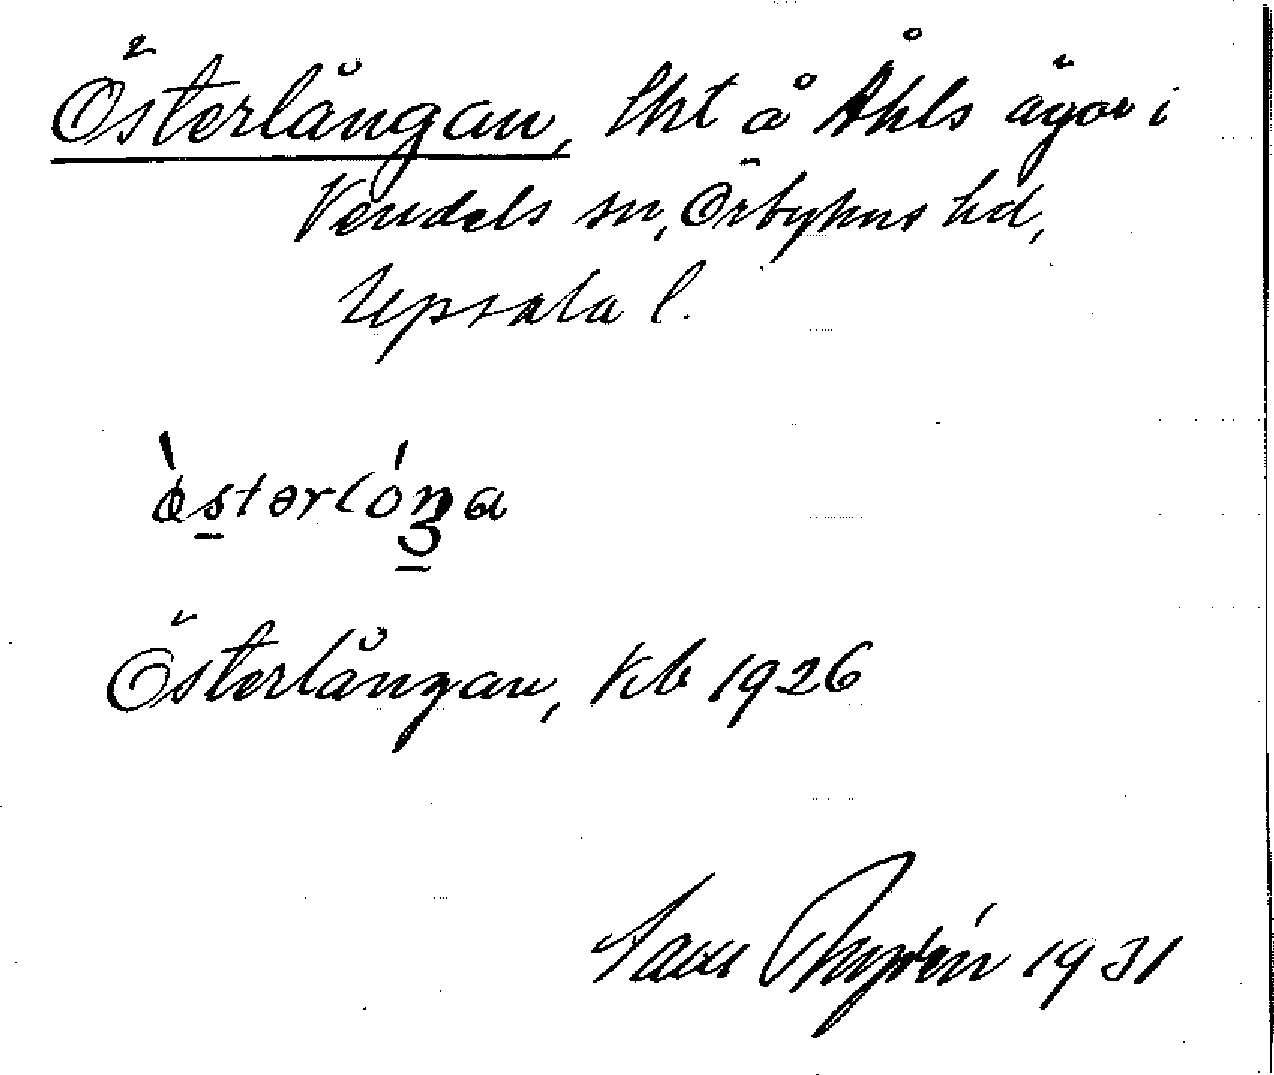 Österlångan, lht å Åhls ägor i
Vendels sn, Örbyhus hd,
Upsala l.
òstərlóŋa
Österlångan, Kb 1926
1931